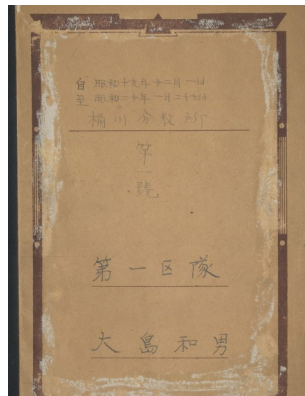 自 昭和十九年十二月一日
至 昭和二十年一月二十七日
桶川分教所
第
一
號
第一区隊
大島和男